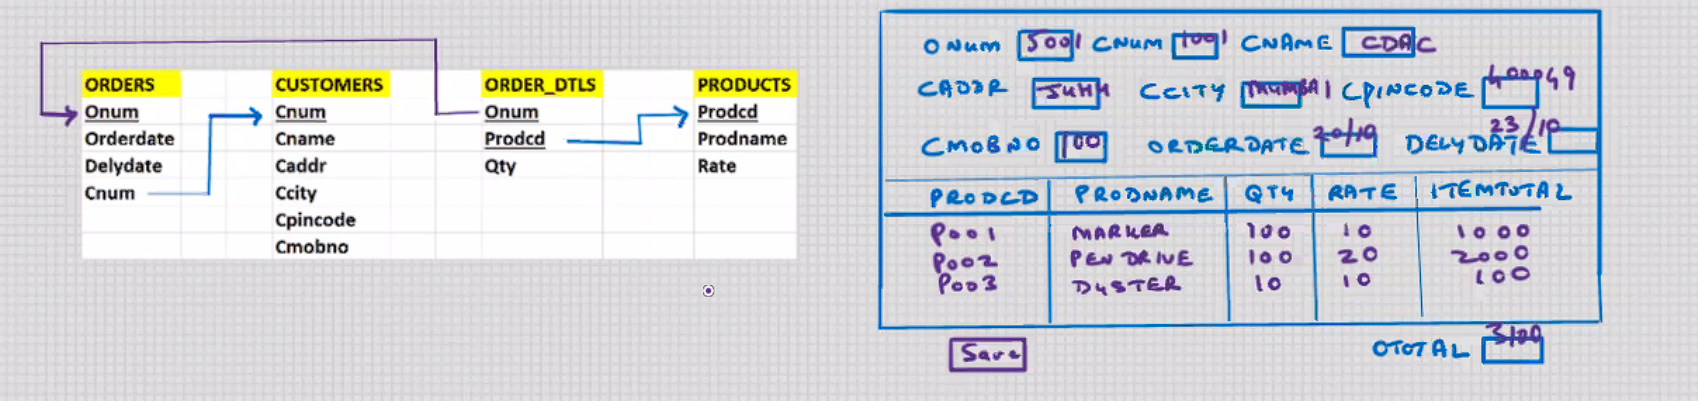 ORDERS CUSTOMERS ORDER_DTLS PRODUCTS
Onum Cnum Onum Prodcd
Orderdate Cname Prodcd Prodname
Delydate Caddr Qty Rate
Cnum Ccity
Cpincode
Cmobno
ONUM 5001 CNUM 1001 CNAME CDAC
CADDR JUHU CCITY MUMBAI CPINCODE 400049
CMOBNO 100 ORDERDATE 20/10 DELYDATE 23/10
PRODCD PRODNAME QTY RATE ITEMTOTAL
P001 MARKER 100 10 1000
P002 PEN DRIVE 100 20 2000
P003 DUSTER 10 10 100
Save OTOTAL 3100